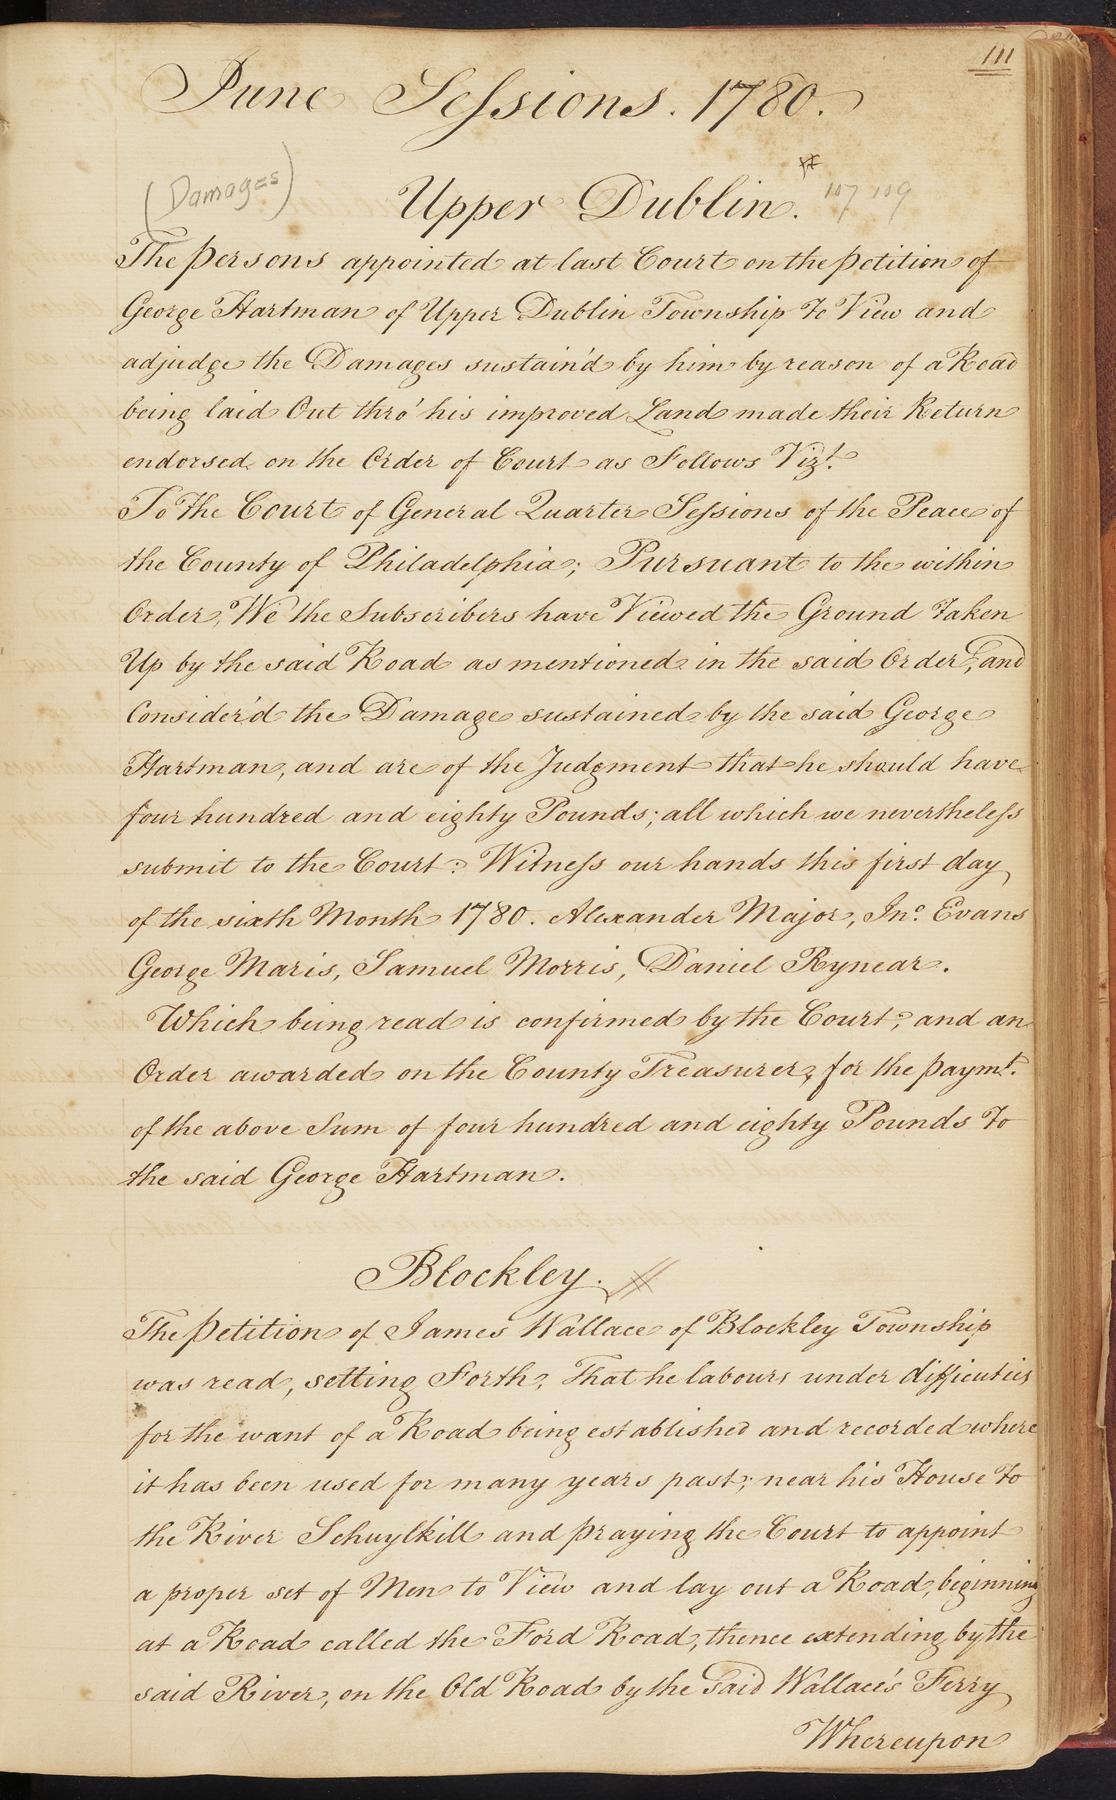 111
June Sessions. 1780.
(Damages)
Upper Dublin. 107 109
The persons appointed at last Court on the petition of
George Hartman of Upper Dublin Township to View and
adjudge the Damages sustain'd by him by reason of a Road
being laid Out thro' his improved Land made their Return
endorsed on the Order of Court as Follows Vizt.
To the Court of General Quarter Sessions of the Peace of
the County of Philadelphia; Pursuant to the within
Order, We the Subscribers have Viewed the Ground taken
Up by the said Road as mentioned in the said Order, and
Consider'd the Damage sustained by the said George
Hartman, and are of the Judgment that he should have
four hundred and eighty Pounds; all which we nevertheless
submit to the Court: Witness our hands this first day
of the sixth Month 1780. Alexander Major, Jno. Evans
George Maris, Samuel Morris, Daniel Rynear.
Which being read is confirmed by the Court, and an
Order awarded on the County Treasurer, for the paymt.
of the above Sum of four hundred and eighty Pounds to
the said George Hartman.
Blockley.
The petition of James Wallace of Blockley Township
was read, setting Forth, That he labours under difficulties
for the want of a Road being established and recorded where
it has been used for many years past; near his House to
the River Schuylkill and praying the Court to appoint
a proper set of Men to View and lay out a Road, beginning
at a Road called the Ford Road, thence extending by the
said River, on the Old Road by the Said Wallace's Ferry
Whereupon